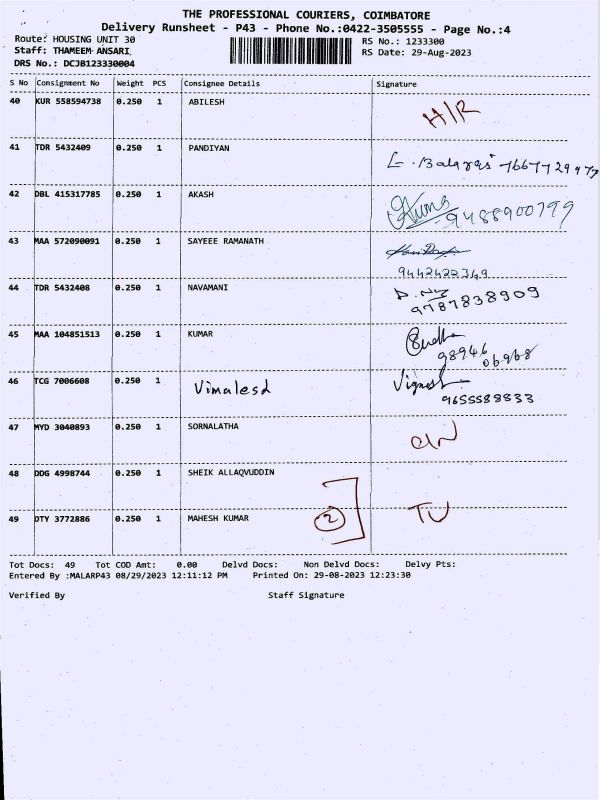 THE PROFESSIONAL COURIERS, COIMBATORE
Delivery Runsheet - P43 - Phone No.:0422-3505555 - Page No.:4
Route: HOUSING UNIT 30
RS No.: 1233300
Staff: THAMEEM ANSARI,
RS Date: 29-Aug-2023
DRS No.: DCJB123330004
S No Consignment No Weight PCS Consignee Details Signature
40 KUR 558594738 0.250 1 ABILESH H/R
41 TDR 5432409 0.250 1 PANDIYAN
42 DBL 415317785 0.250 1 AKASH 9488900799
43 MAA 572090091 0.250 1 SAYEEE RAMANATH
9442422349
44 TDR 5432408 0.250 1 NAVAMANI
9787838909
45 MAA 104851513 0.250 1 KUMAR Sudha
98946 06968
46 TCG 7006608 0.250 1 Vimalesd Vignesh
9655588833
47 MYD 3040893 0.250 1 SORNALATHA
48 DDG 4998744 0.250 1 SHEIK ALLAQVUDDIN
49 DTY 3772886 0.250 1 MAHESH KUMAR 2
Tot Docs: 49 Tot COD Amt: 0.00 Delvd Docs: Non Delvd Docs: Delvy Pts:
Entered By :MALARP43 08/29/2023 12:11:12 PM Printed On: 29-08-2023 12:23:30
Verified By Staff Signature